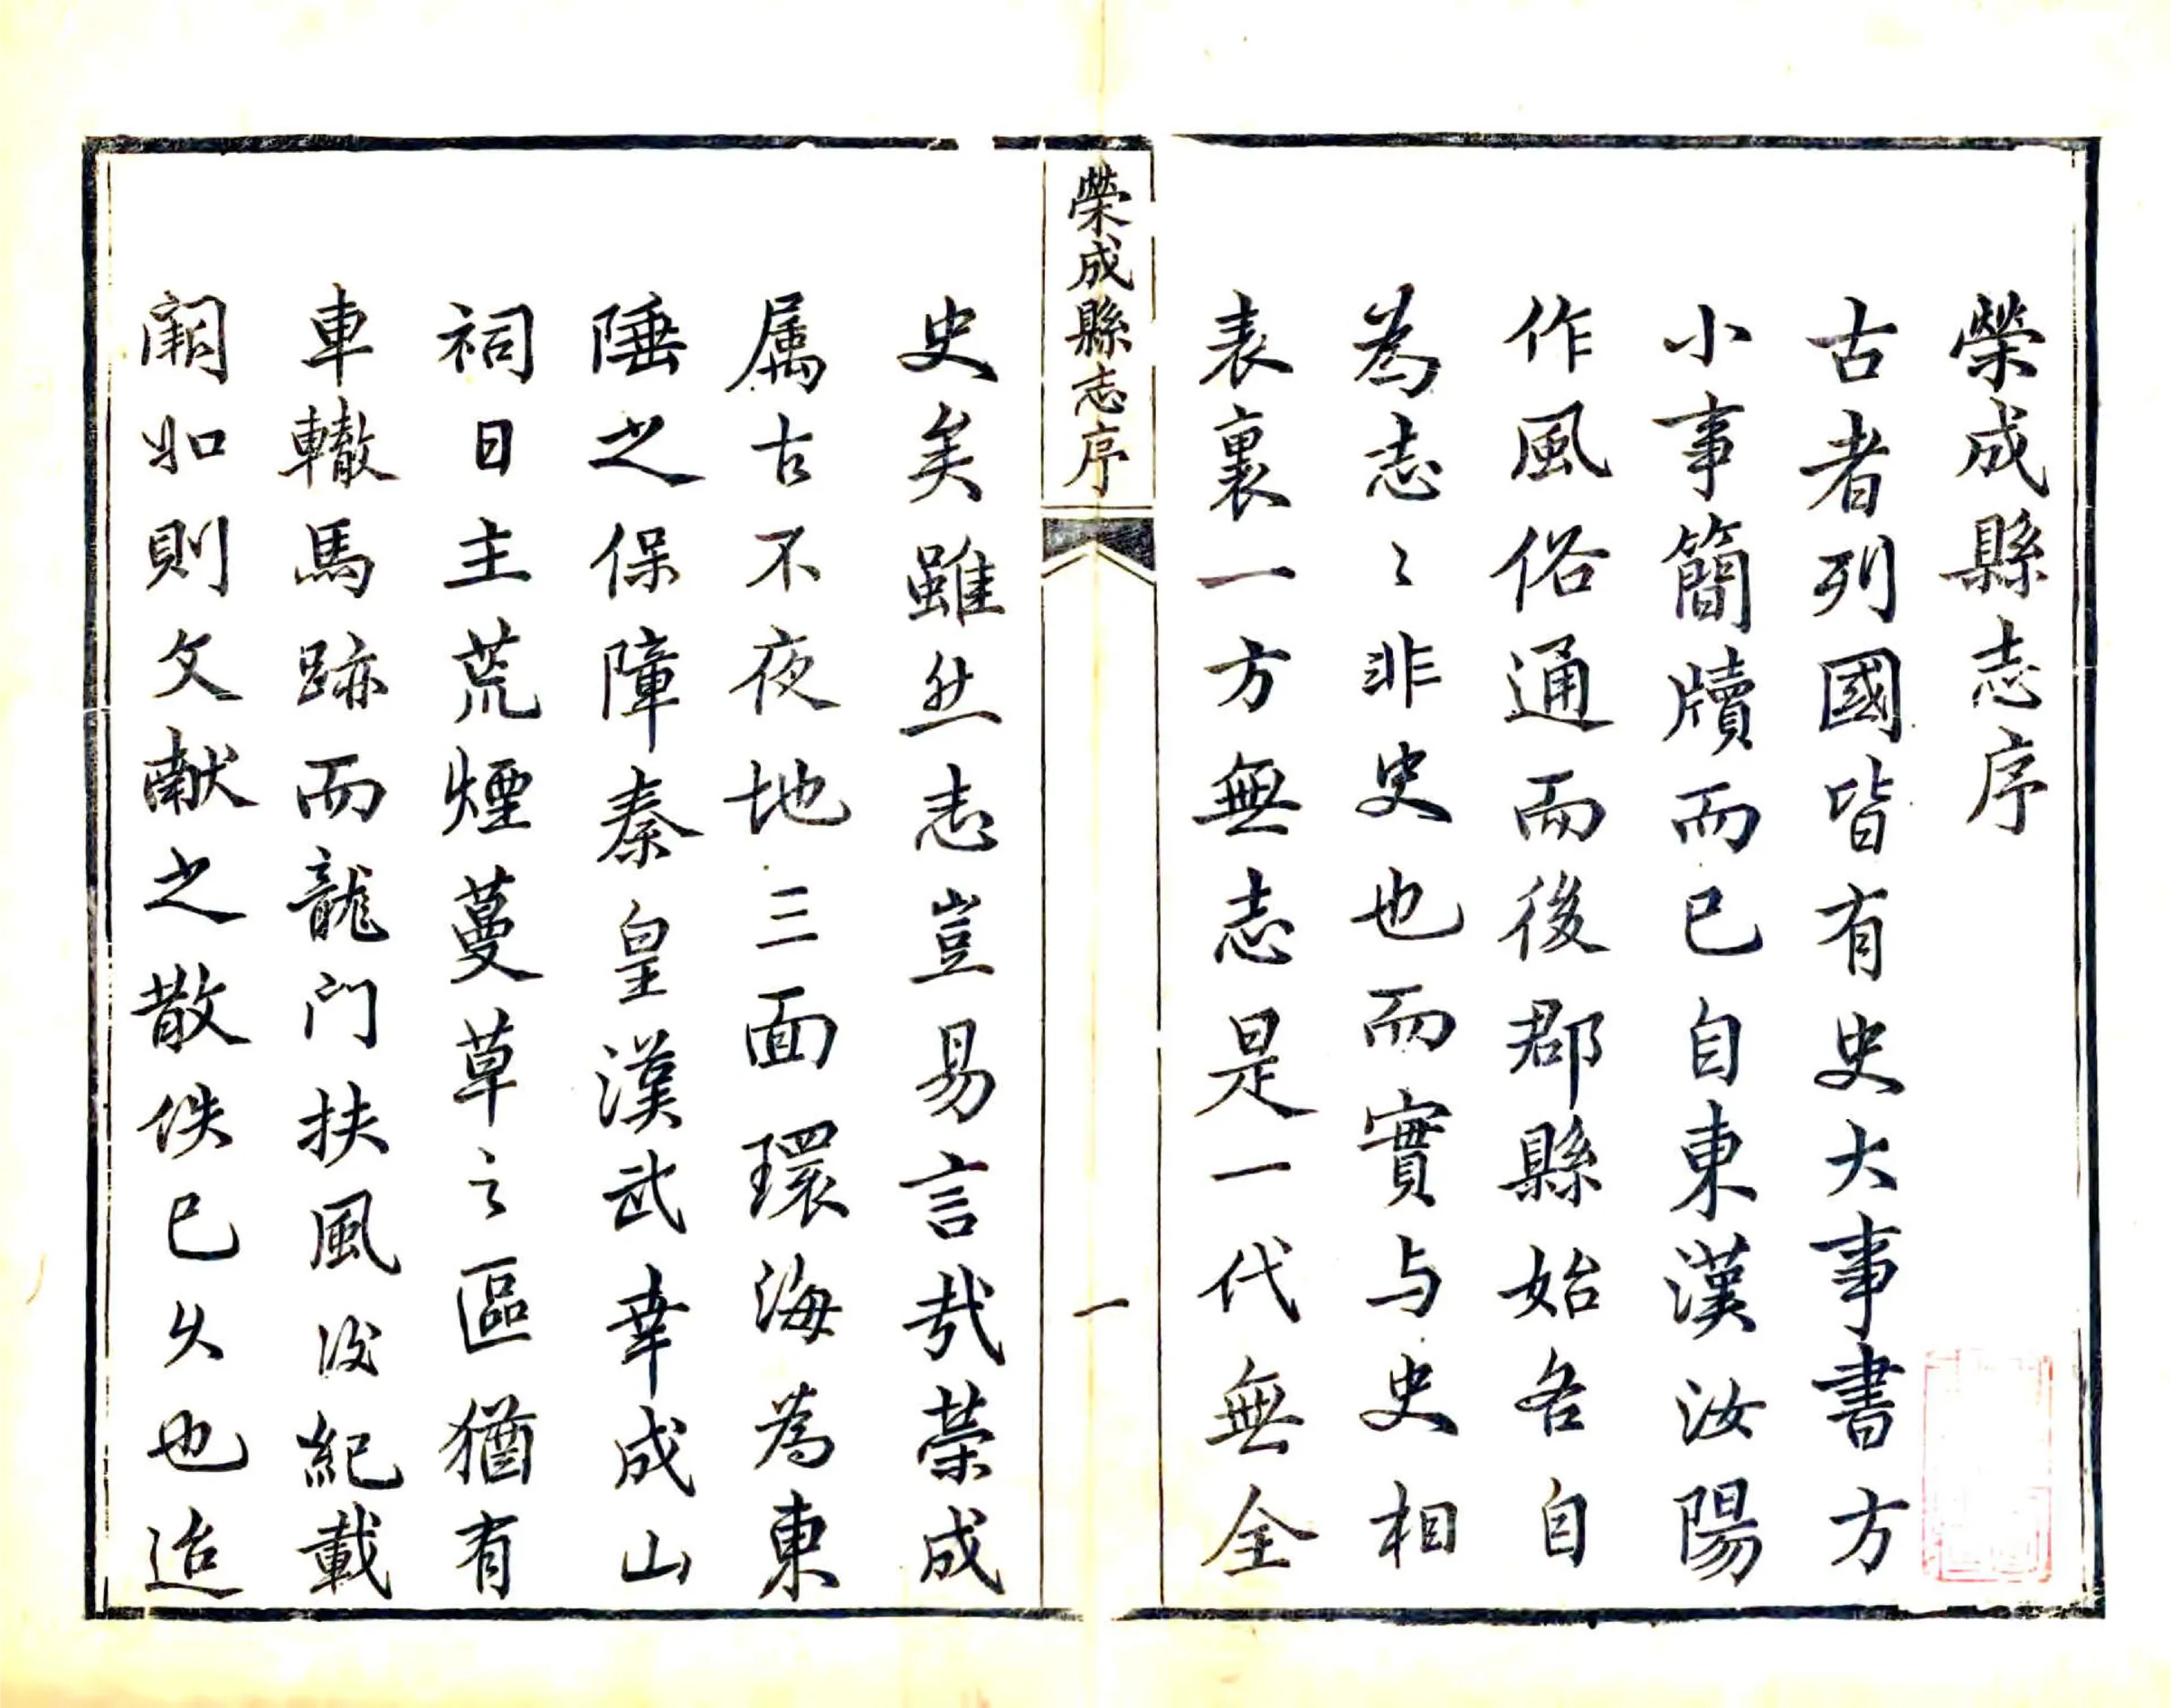 榮成縣志序
古者列國皆有史大事書方
小事簡牘而已自東漢汝陽
作風俗通而後郡縣始各自
為志〻非史也而實与史相
表裏一方無志是一代無全
榮成縣志序
一
史矣雖然志豈易言哉榮成
属古不夜地三面環海為東
陲之保障秦皇漢武幸成山
祠日主荒煙蔓草之區猶有
車轍馬跡而龍門扶風後紀載
闕如則文献之散佚已久也迨